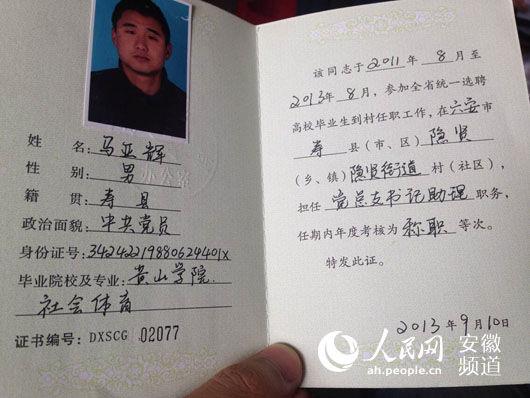 姓 名:马亚辉
性 别:男
籍 贯:寿县
政治面貌:中共党员
身份证号:34242219880624401X
毕业院校及专业:黄山学院
社会体育
证书编号:DXSCG 02077
该同志于2011年8月至
2013年8月,参加全省统一选聘
高校毕业生到村任职工作,在六安市
寿县(市、区)隐贤
(乡、镇)隐贤街道村(社区),
担任党总支书记助理职务,
任期内年度考核为称职等次。
特发此证。
2013年9月10日
人民网 安徽频道
ah.people.cn